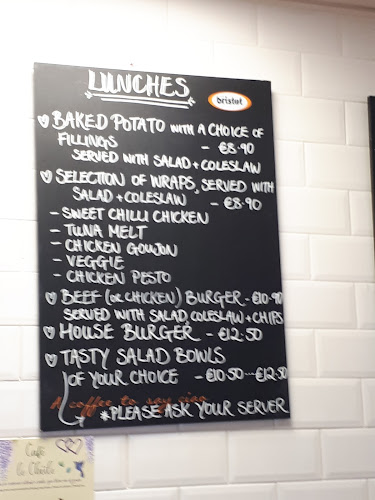 LUNCHES
bristot
BAKED POTATO WITH A CHOICE OF
FILLINGS - €8.90
SERVED WITH SALAD + COLESLAW
SELECTION OF WRAPS, SERVED WITH
SALAD + COLESLAW - €8.90
- SWEET CHILLI CHICKEN
- TUNA MELT
- CHICKEN GOUJON
- VEGGIE
- CHICKEN PESTO
BEEF (OR CHICKEN) BURGER - €10.90
SERVED WITH SALAD, COLESLAW + CHIPS
HOUSE BURGER - €12.50
TASTY SALAD BOWLS
OF YOUR CHOICE - €10.50...€12.50
A coffee to say ciao
*PLEASE ASK YOUR SERVER
Café